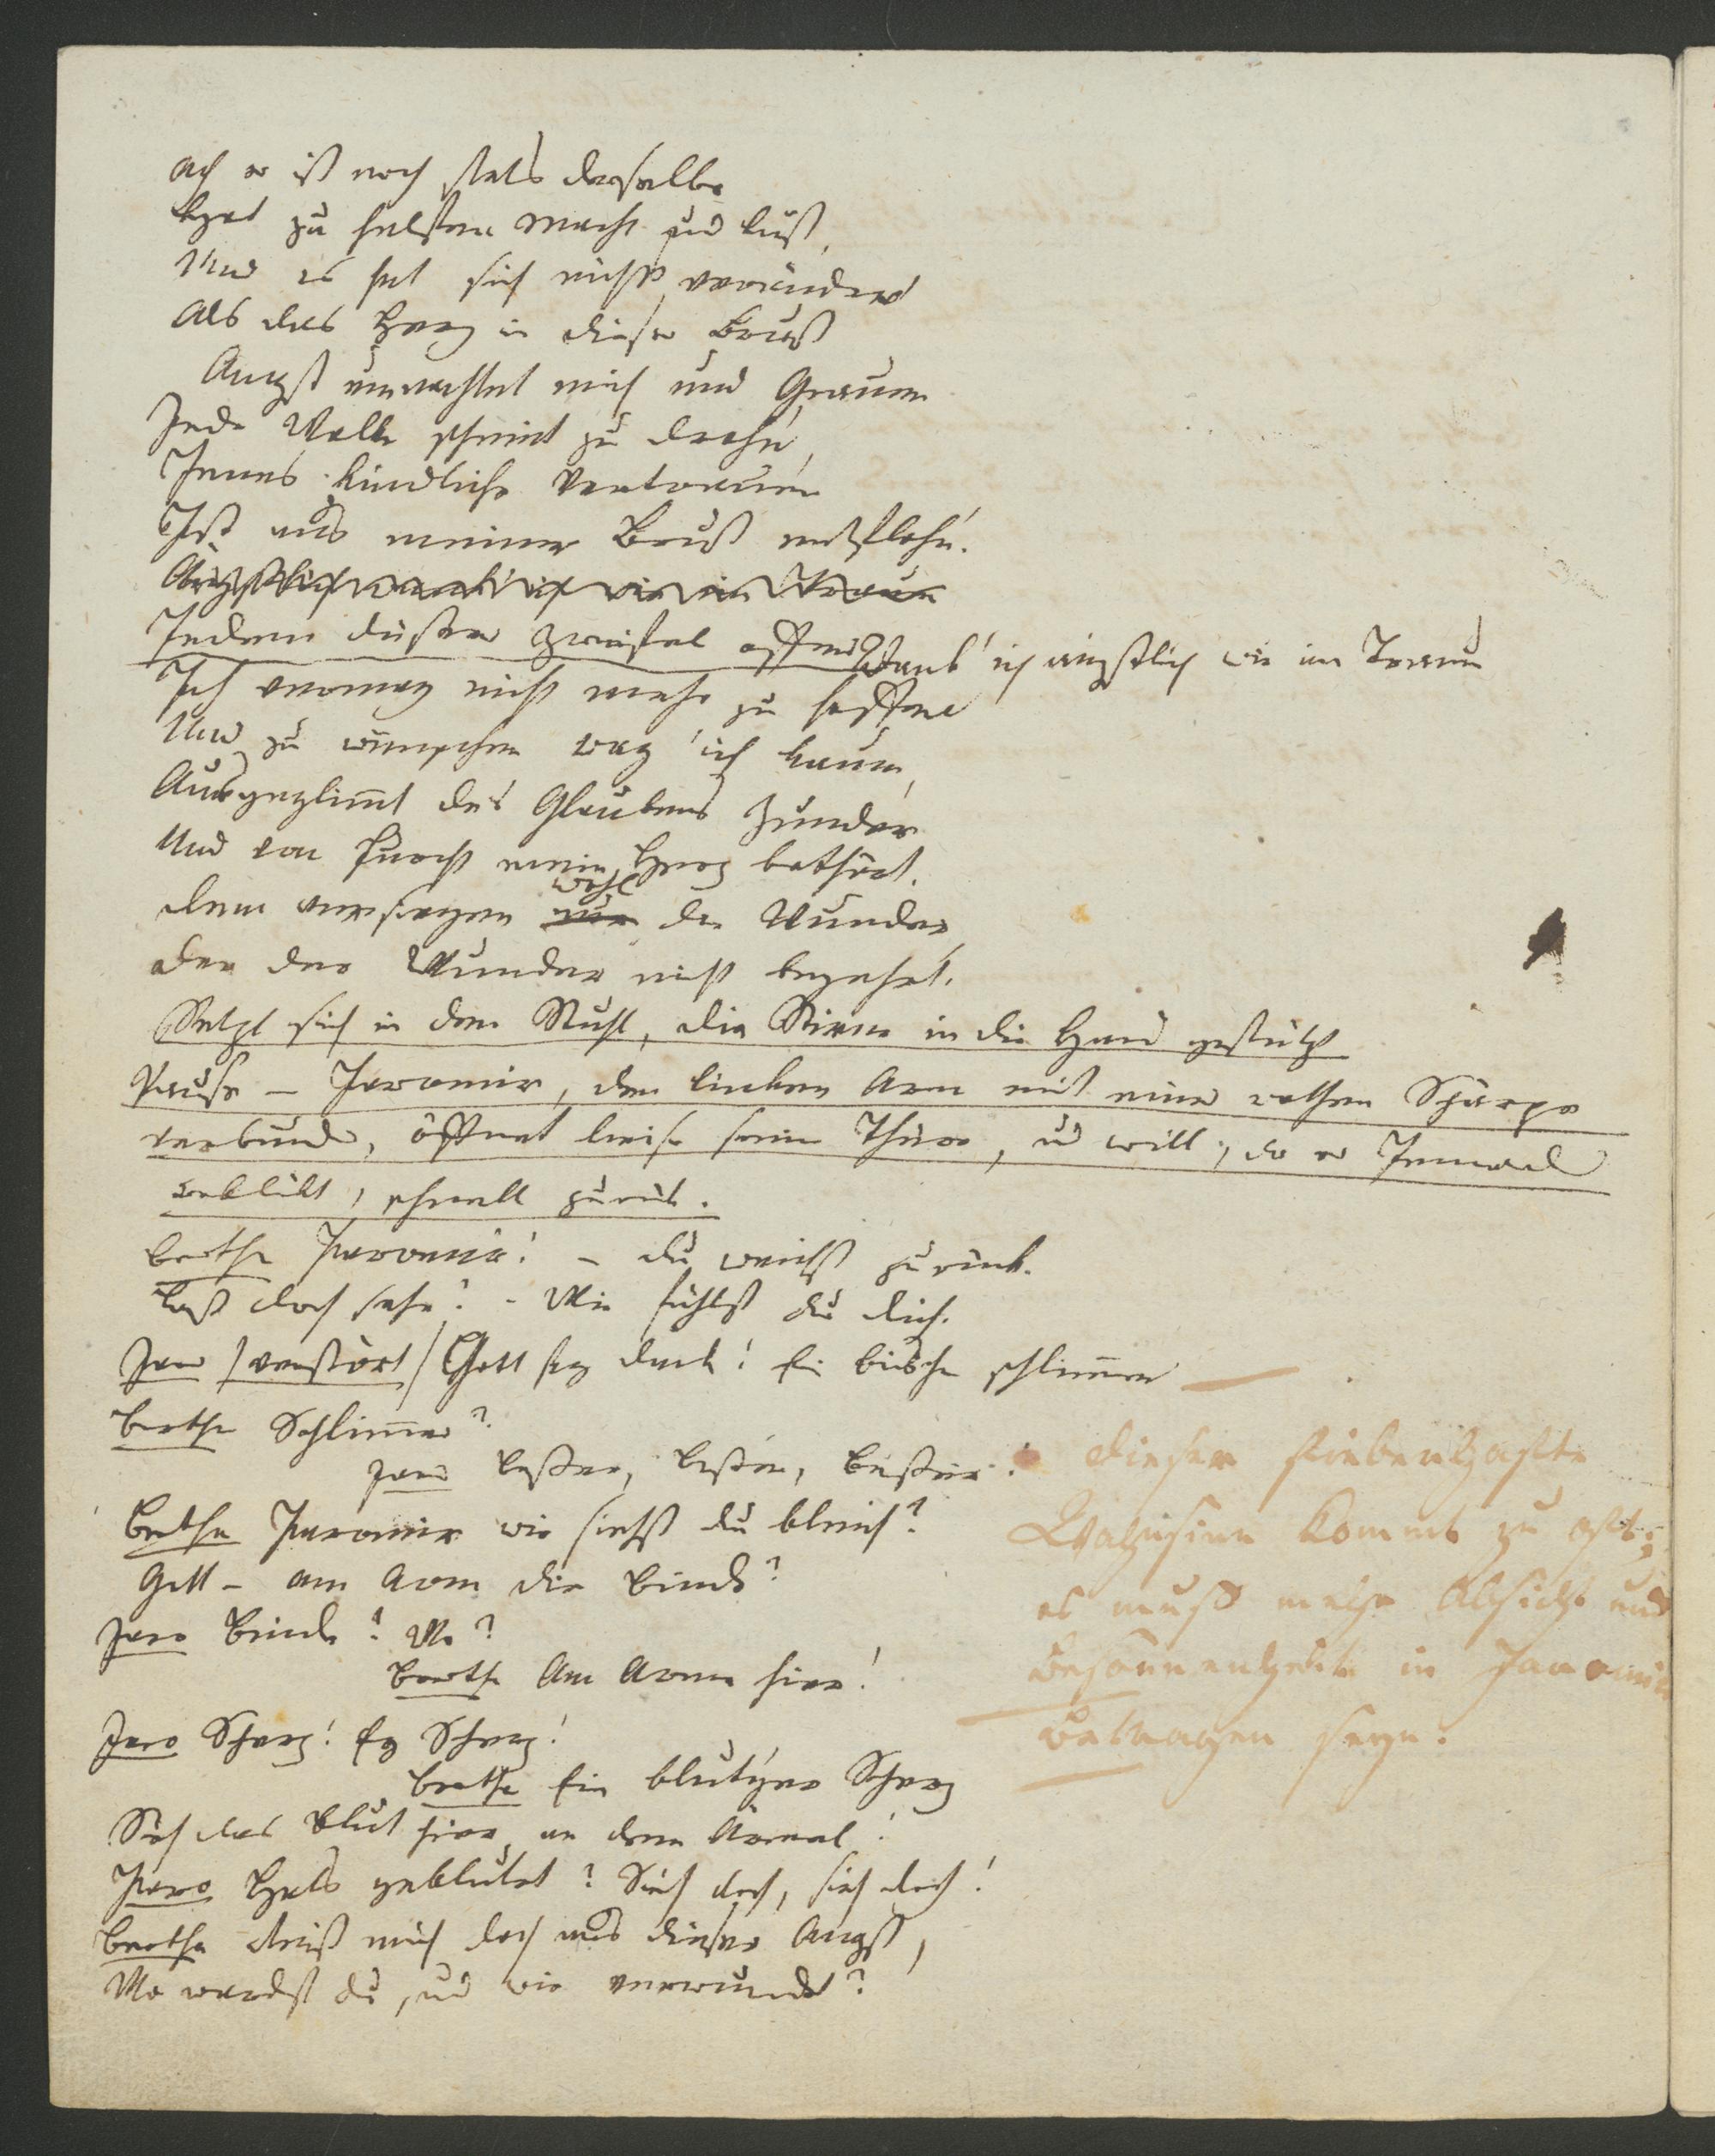 Ach er ist noch stets derselbe
Hat zu helfen Macht und Lust,
Und es hat sich nichts verändert
Als das Herz in dieser Brust
Angst umnachtet mich und Grauen
Jede Welle scheint zu drohn,
Jenes kindliche Vertrauen
Ist aus meiner Brust entflohn.
Ängstlich wank' ich wie im Traum
Jedem düstern Zweifel offen Wank' ich ängstlich wie im Traum
Ich vermag nicht mehr zu hoffen
Und zu wünschen wag' ich kaum,
Ausgeglimt des Glaubens Zunder
Und von Furcht mein Herz bethört.
dem versagen nur wohl die Wunder,
Der der Wunder nicht begehrt.
Setzt sich in den Stuhl, die Stirne in die Hand gestützt
Pause – Jaromir, den linken Arm mit einer rothen Schärpe
verbunden, öffnet leise seine Thüre, und will, da er Jemand
erblikt, schnell zurük.
Bertha Jaromir! – du weichst zurück.
Laß doch sehn! – Wie fühlst du dich.
Jaro /verstört/ Gott sey dank! Ein bischen schlimmer
Bertha Schlimmer?
Jaro Besser, besser, besser!
Bertha Jaromir wie siehst du bleich?
Gott – am Arm die Binde?
Jaro Binde? Wo?
Bertha Am Arme hier!
Jaro Scherz! Ey Scherz!
Bertha Ein blut'ger Scherz
Sieh das Blut hier an dem Ärmel!
Jaro Hats geblutet? Sieh doch, sieh doch!
Bertha Reiß mich doch aus dieser Angst,
Wo wardst du, und wie verwundet?
dieser fieberhafte
Wahnsinn kommt zu oft;
es muß mehr Absicht und
Besonnenheit in Jaromirs
Betragen seyn.